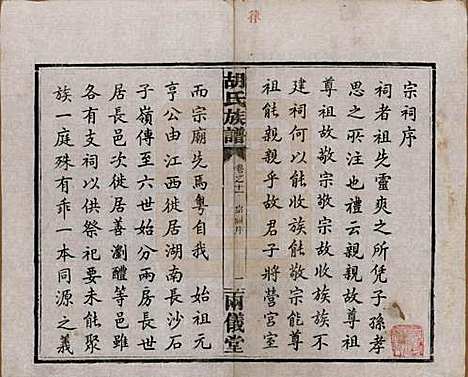 宗祠序
祠者祖先靈爽之所凭子孫孝
思之所注也禮云親親故尊祖
尊祖故敬宗敬宗故收族族不
建祠何以能收族能敬宗能尊
祖能親親乎故君子將營宮室
胡氏族譜
卷之十一
宗祠序
一
兩儀堂
而宗廟先焉粵自我　始祖元
亨公由江西徙居湖南長沙石
子嶺傳至六世始分兩房長世
居長邑次徙居善瀏醴等邑雖
各有支祠以供祭祀要未能聚
族一庭殊有乖一本同源之義